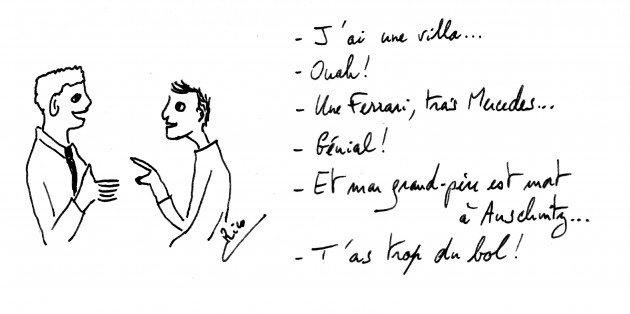 - J'ai une villa...
- Ouah!
- Une Ferrari, trois Mercedes...
- Génial!
- Et mon grand-père est mort
à Auschwitz...
- T'as trop du bol!
Rico